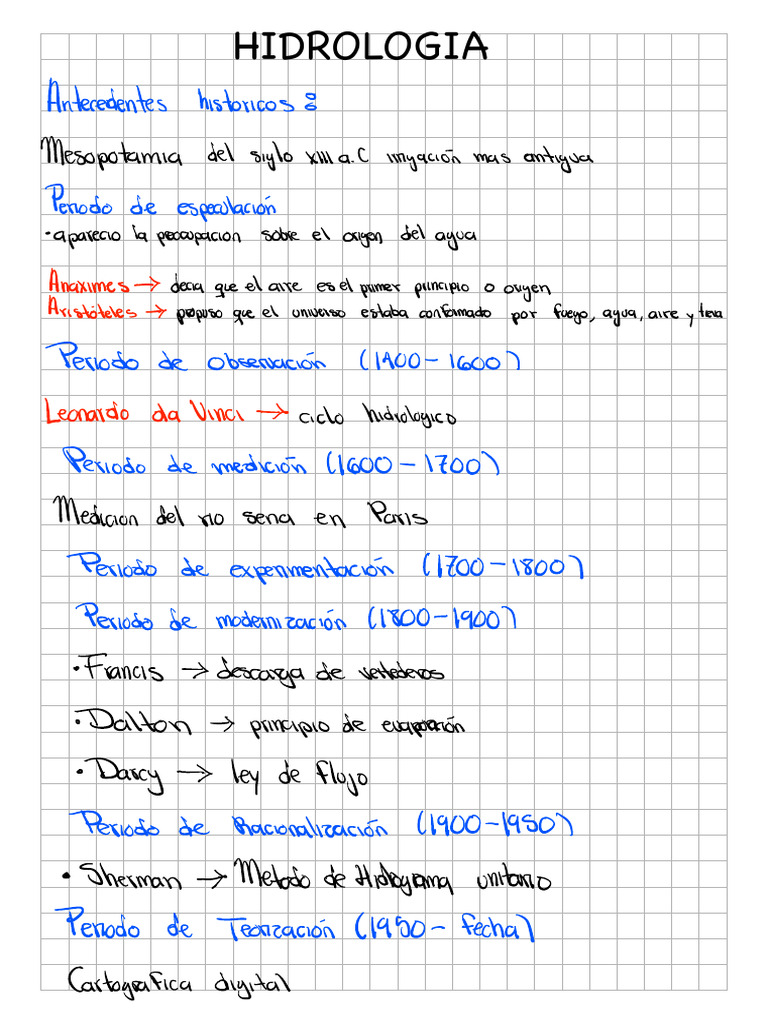 HIDROLOGIA
Antecedentes historicos :
Mesopotamia del siglo XIII a.C irrigación mas antigua
Periodo de especulación
• aparecio la preocupacion sobre el origen del agua
Anaximes → decia que el aire es el primer principio o origen
Aristóteles → propuso que el universo estaba conformado por fuego, agua, aire y tierra
Periodo de observación (1400 - 1600)
Leonardo da Vinci → ciclo hidrologico
Periodo de medición (1600 - 1700)
Medicion del rio sena en Paris
Periodo de experimentación (1700 - 1800)
Periodo de modernización (1800 - 1900)
• Francis → descarga de vertederos
• Dalton → principio de evaporación
• Darcy → ley de flujo
Periodo de Racionalización (1900 - 1950)
• Sherman → Metodo de Hidrograma unitario
Periodo de Teorización (1950 - fecha)
Cartografica digital